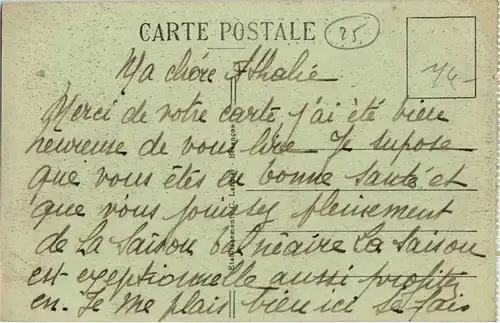 CARTE POSTALE
25
Ma chère Athalie
Merci de votre carte, j'ai été bien
heureuse de vous lire. Je suppose
que vous êtes en bonne santé et
que vous jouissez pleinement
de La Saison balnéaire La Saison
est exeptionnelle aussi profitez
en. Je me plais bien ici Je fais